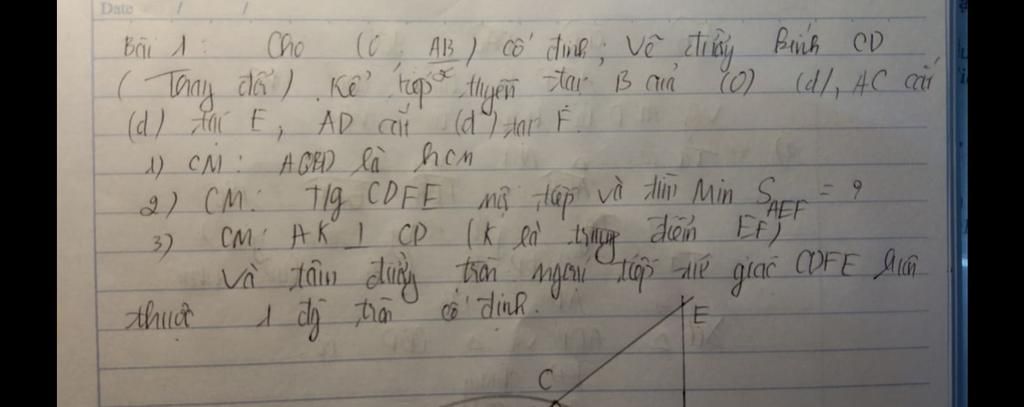 Date / /
Bài 1: Cho (O; AB/2) cố định; Vẽ đường kính CD
(Thay đổi). Kẻ tiếp tuyến tại B của (O) (d), AC cắt
(d) tại E, AD cắt (d) tại F.
1) CM: ACBD là hcn
2) CM: T/g CDFE nội tiếp và tìm Min S_AEF = ?
3) CM: AK ⊥ CD (K là trung điểm EF)
Và tâm đường tròn ngoại tiếp tứ giác CDFE luôn
thuộc 1 đg tròn cố định.
E
C